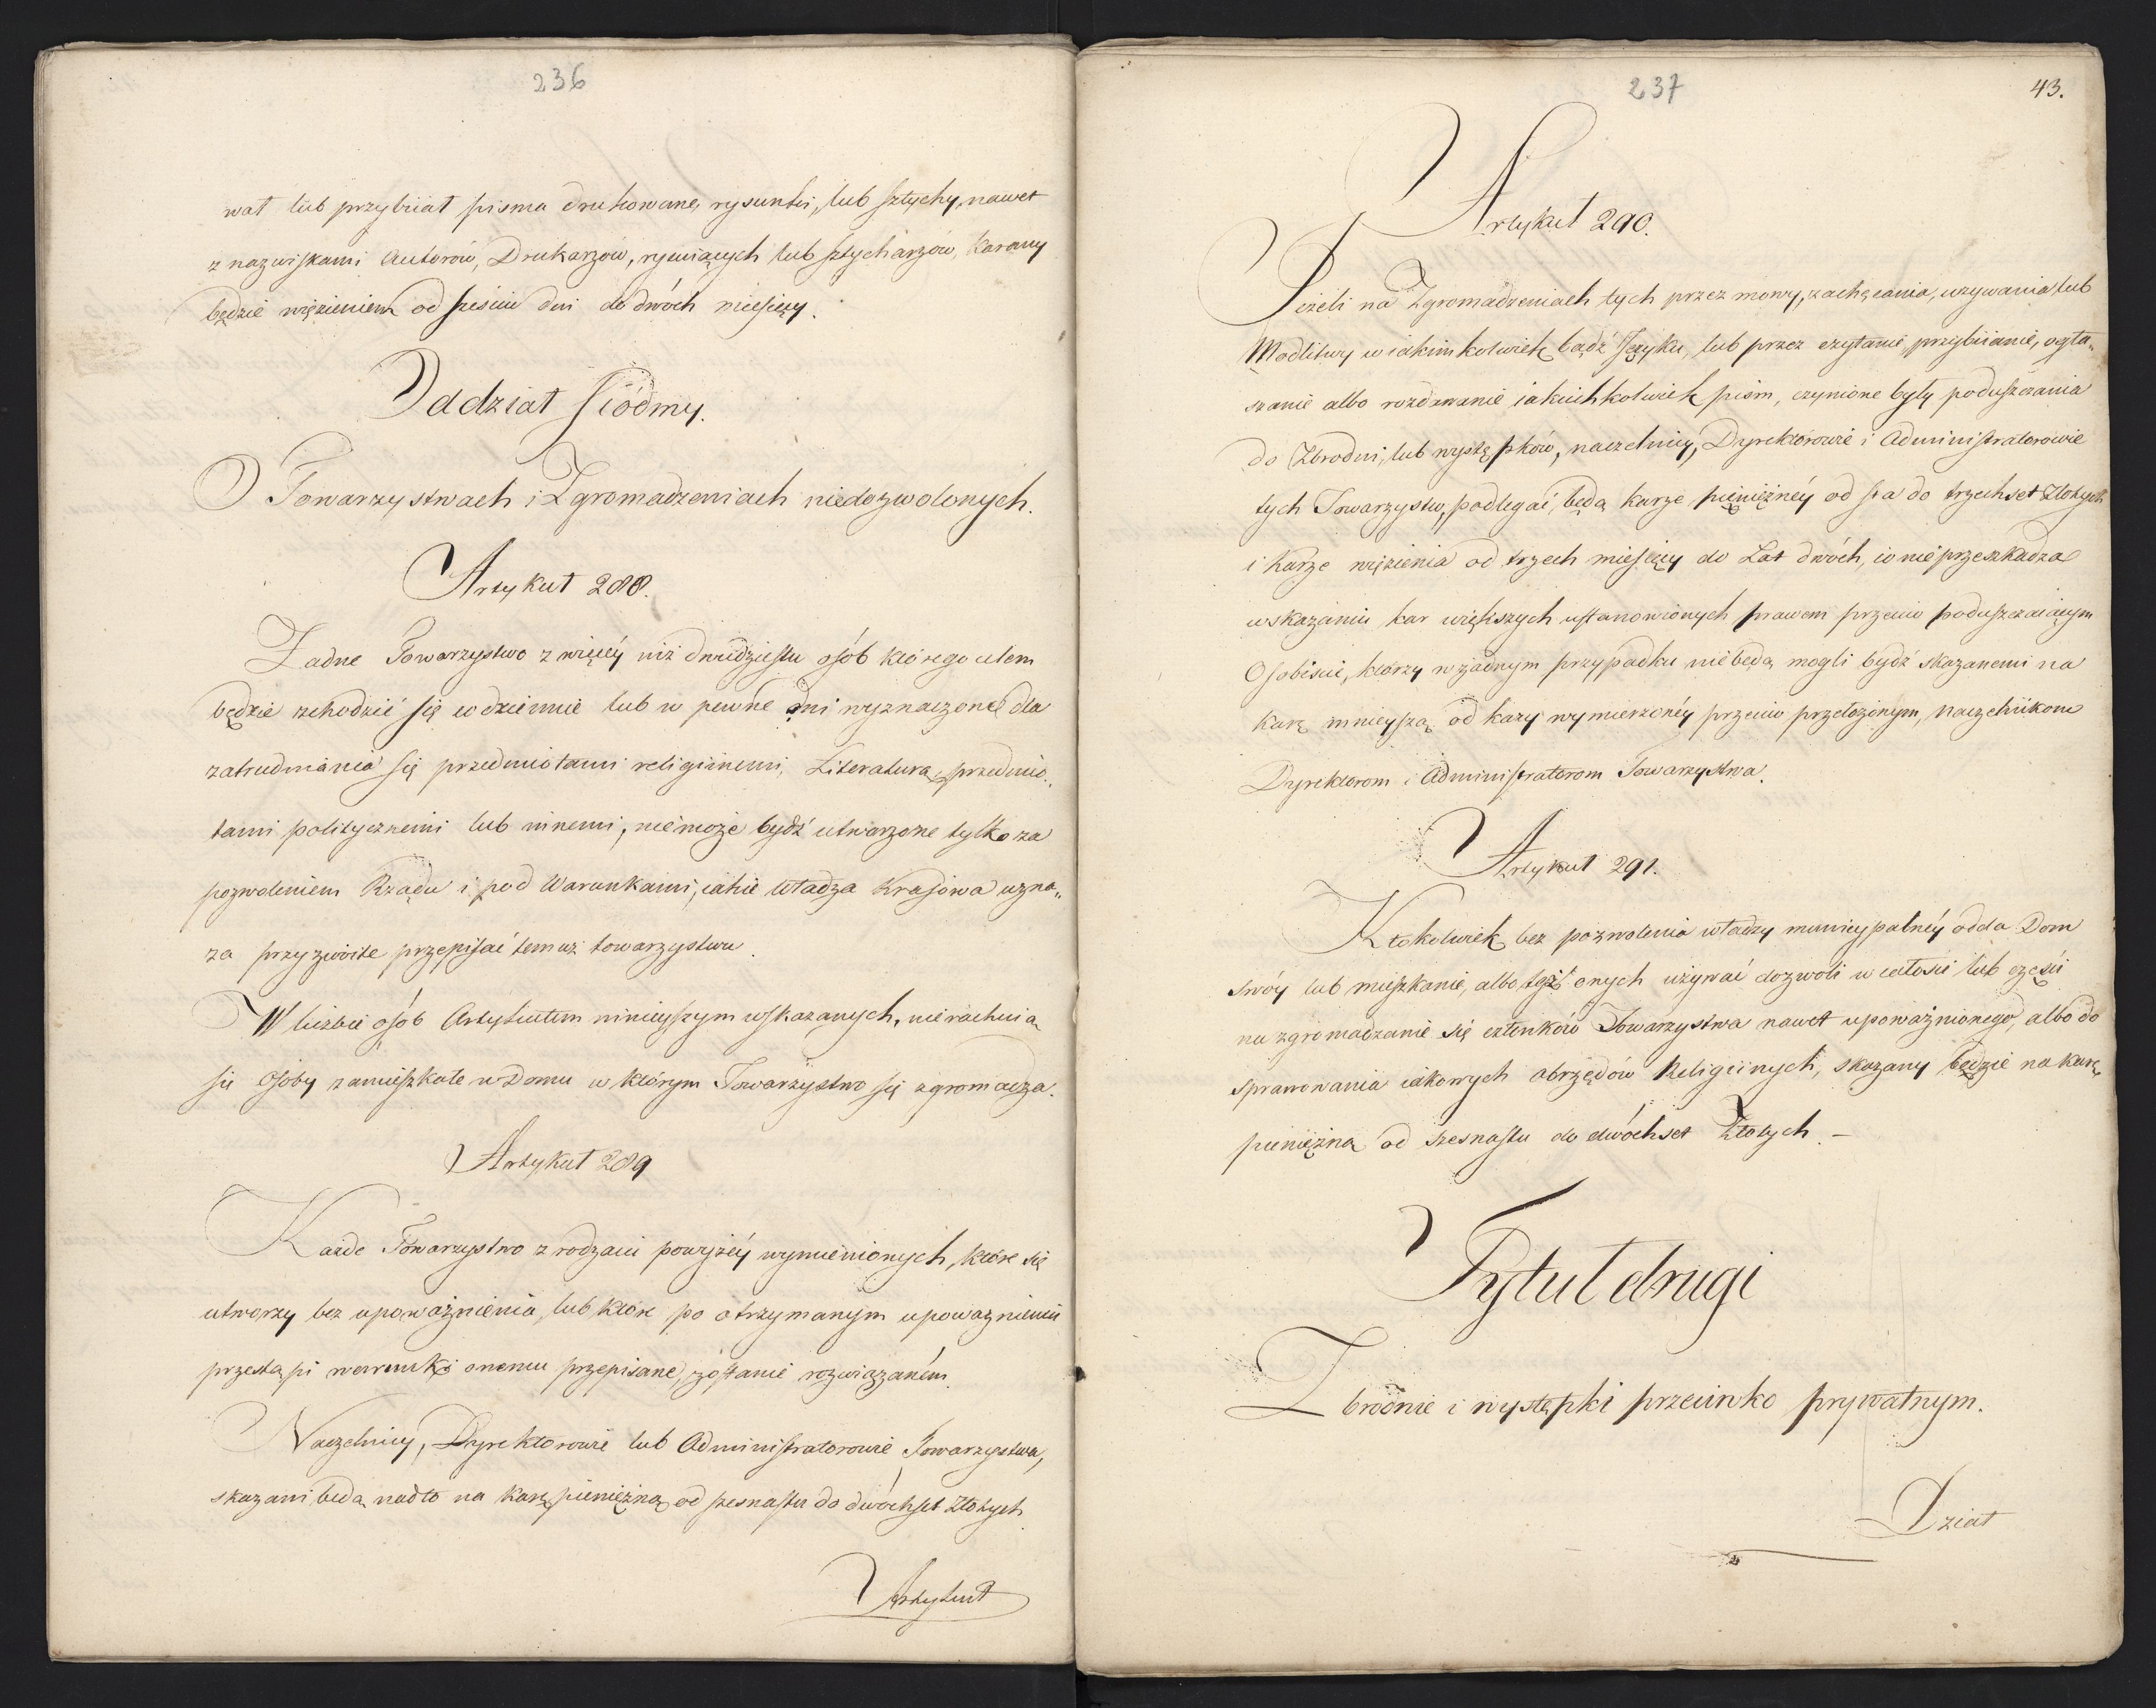 236
wał lub przybiiał pisma drukowane, rysunki, lub sztychy, nawet
z nazwiskami Autorów, Drukarzów, ryiących lub sztycharzów, karany
będzie więzieniem od sześciu dni do dwóch miesięcy.
Oddział Siódmy.
O Towarzystwach i Zgromadzeniach niedozwolonych.
Artykuł 288.
Żadne Towarzystwo z więcéy niż dwudziestu osób którego celem
będzie schodzić się codziennie lub w pewne dni wyznaczone dla
zatrudniania się przedmiotami religiinemi, Literaturą, przedmio„
tami politycznemi lub innemi, nie może bydź utworzone tylko za
pozwoleniem Rządu i pod Warunkami, iakie Władza Kraiowa uzna„
za przyzwoite przepisać temuż towarzystwu.
W liczbie osób Artykułem ninieyszym wskazanych, nie rachuią
się Osoby zamieszkałe w Domu w którym Towarzystwo się zgromadza.
Artykuł 289
Każde Towarzystwo z rodzaiu powyżéy wymienionych, które się
utworzy bez upoważnienia, lub które po otrzymanym upoważnieniu
przestąpi warunki onemu przepisane, zostanie rozwiązaném.
Naczelnicy, Dyrektorowie lub Administratorowie Towarzystwa,
skazani będą nadto na karę pieniężną od szesnastu do dwóchset Złotych
Artykuł
237
43.
Artykuł 290.
Jeżeli na Zgromadzeniach tych przez mowy, zachęcania, wzywania lub
Modlitwy w iakimkolwiek bądź Języku, lub przez czytanie, przybiianie, ogła„
szanie albo rozdawanie iakichkolwiek pism, czynione były poduszczania
do Zbrodni, lub występków, naczelnicy, Dyrektorowie i Administratorowie
tych Towarzystw, podlegać będą karze pieniężnéy od sta do trzechset Złotych
i karze więzienia od trzech miesięcy do Lat dwóch, co nie przeszkadza
wskazaniu kar większych ustanowionych prawem przeciw poduszczaiącym
Osobiście, którzy w żadnym przypadku nie będą mogli bydź skazanemi na
karę mnieyszą od kary wymierzonéy przeciw przełożonym, naczelnikom
Dyrektorom i Administratorom Towarzystwa.
Artykuł 291.
Ktokolwiek bez pozwolenia władzy municypalnéy odda Dom
swóy lub mieszkanie, albo też onych używać dozwoli w całości lub części
na zgromadzanie się członków Towarzystwa nawet upoważnionego, albo do
sprawowania iakowych obrzędów Religiinych, skazany będzie na karę
pieniężną od szesnastu do dwóchset Złotych. –
Tytuł drugi
Zbrodnie i występki przeciwko prywatnym.
Dział